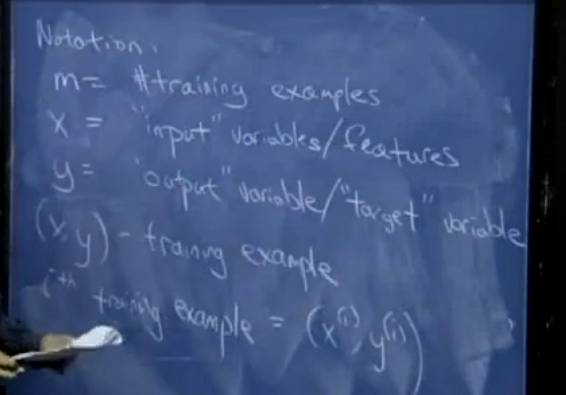 Notation:
m = # training examples
x = "input" variables/features
y = "output" variable/"target" variable
(x, y) - training example
i^th training example = (x^(i), y^(i))